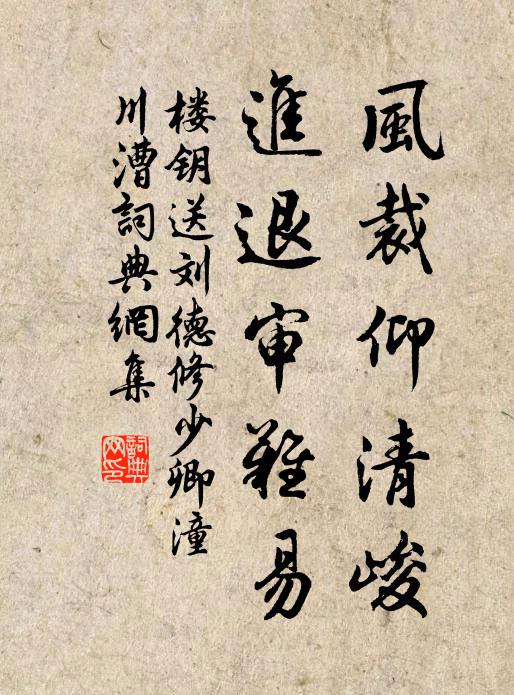 風裁仰清峻
進退审難易
楼钥送刘德修少卿潼
川漕詞典網集
詞典网印